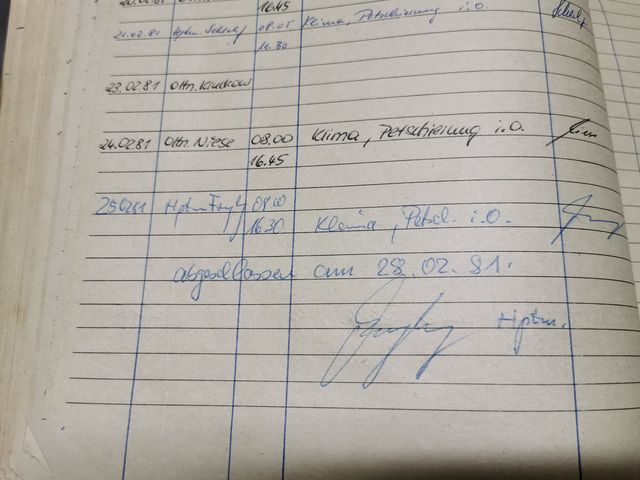 20.02.81 16.45
21.02.81 Hptm. 08.05 Klima, Petschierung i.O.
16.30
23.02.81 Oltn.
24.02.81 Oltn. Niese 08.00 Klima, Petschierung i.O.
16.45
25.02.81 Hptm 08.00
16.30 Klima, Petsch. i.O.
abgeschlossen am 28.02.81.
Hptm.